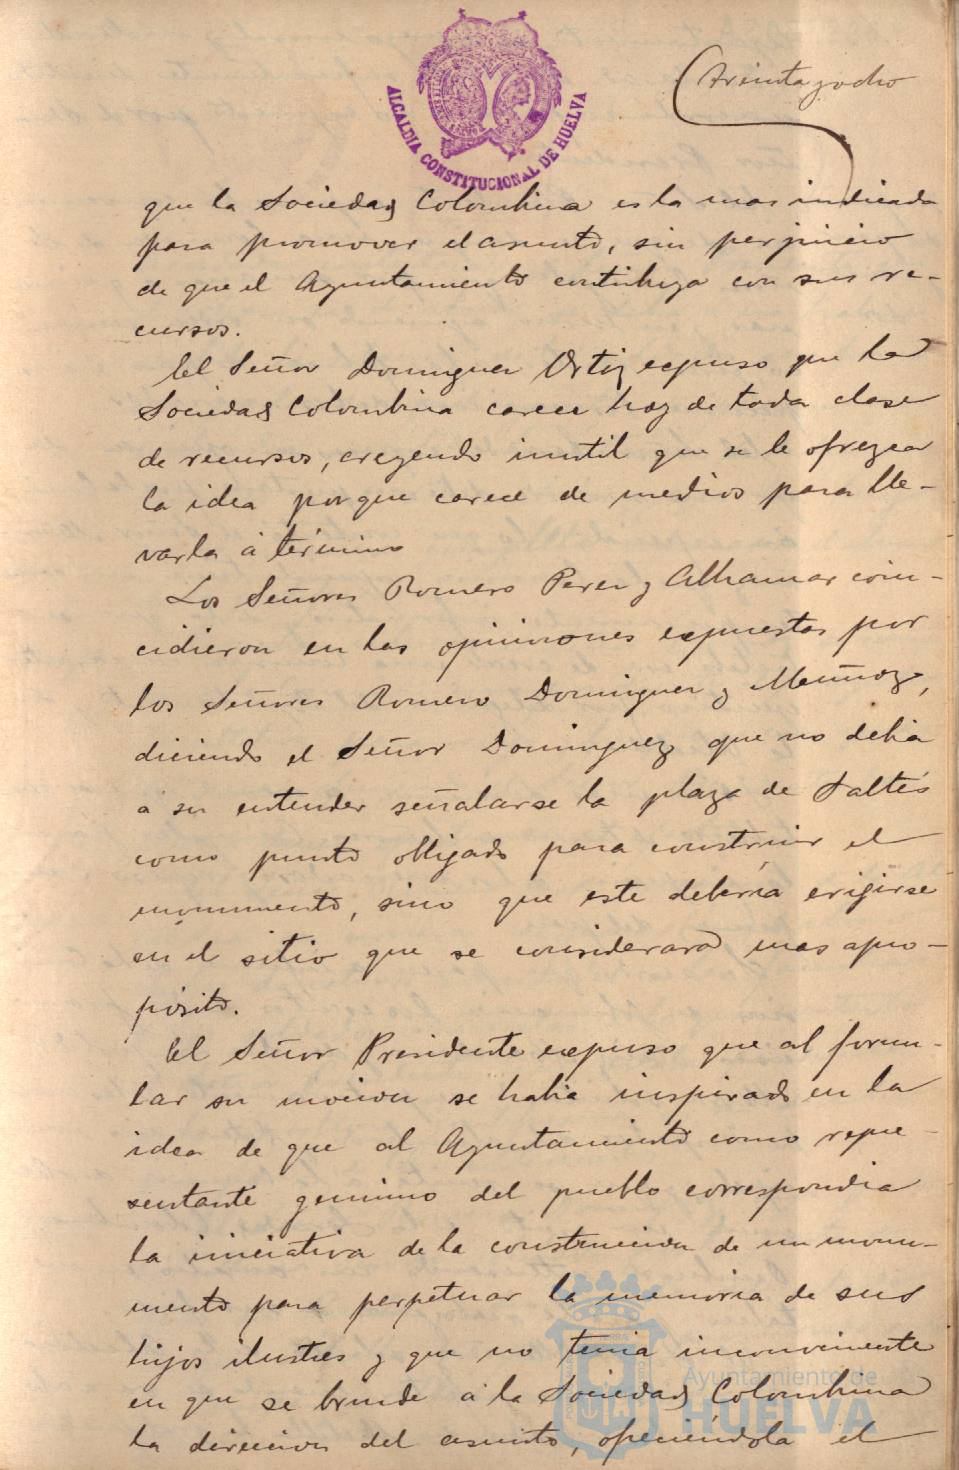 ALCALDIA CONSTITUCIONAL DE HUELVA
treinta y ocho
que la Sociedad Colombina es la mas indicada
para promover el asunto, sin perjuicio
de que el Ayuntamiento contribuya con sus re-
cursos.
El Señor Dominguez Ortiz expuso que la
Sociedad Colombina carece hoy de toda clase
de recursos, creyendo inutil que se le ofrezca
la idea porque carece de medios para lle-
varla á término
Los Señores Romero Perez y Alhamar coin-
cidieron en las opiniones expuestas por
los Señores Romero Dominguez y Muñoz,
diciendo el Señor Dominguez que no debia
a su entender señalarse la plaza de Saltés
como punto obligado para construir el
monumento, sino que este deberia erigirse
en el sitio que se considerara mas apro-
pósito.
El Señor Presidente expuso que al formu-
lar su mocion se habia inspirado en la
idea de que al Ayuntamiento como repre-
sentante genuino del pueblo correspondia
la iniciativa de la construccion de un monu-
mento para perpetuar la memoria de sus
hijos ilustres y que no tenia inconveniente
en que se brinde á la Sociedad Colombina
la direccion del asunto, ofreciéndola el
Ayuntamiento de
HUELVA